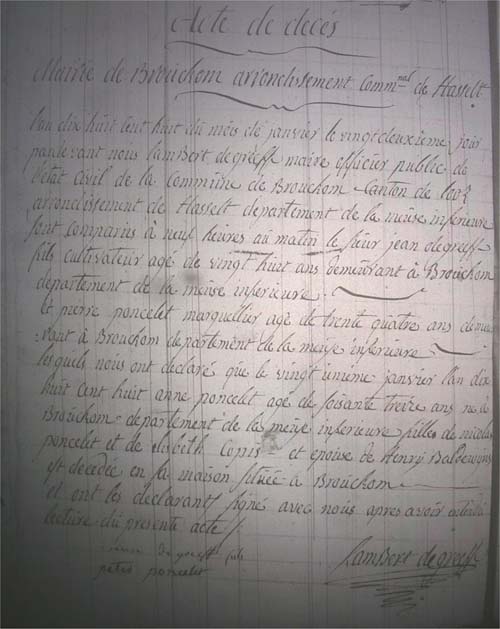 Acte de decés
Mairie de Brouckom arrondissement Comm.nal de Hasselt
l'an dix huit Cent huit du mois de janvier le vingt deuxieme jour
pardevant nous lambert degreeff maire officier public de
l'état Civil de la Commune de Brouckom Canton de looz
arrondissement de Hasselt departement de la meuse inferieure
sont Comparus à neuf heures au matin le sieur jean degreeff
fils cultivateur agé de vingt huit ans demeurant à Brouckom
departement de la meuse inferieure.
et pierre poncelet marguellier agé de trente quatre ans demeu
-rant à Brouckom departement de la meuse inferieure
lesquels nous ont declaré que le vingt unieme janvier l'an dix
huit Cent huit anne poncelet agé de soisante treize ans né à
Brouckom departement de la meuse inferieure filles de nicolas
poncelet et de elisbeth Copis et epouse de Henry Baldewyns
est decedée en la maison située à Brouckom
et ont les declarants signé avec nous apres avoir entendu
lecture du presente acte
degreeff fils
peter poncelet
Lambert degreeff